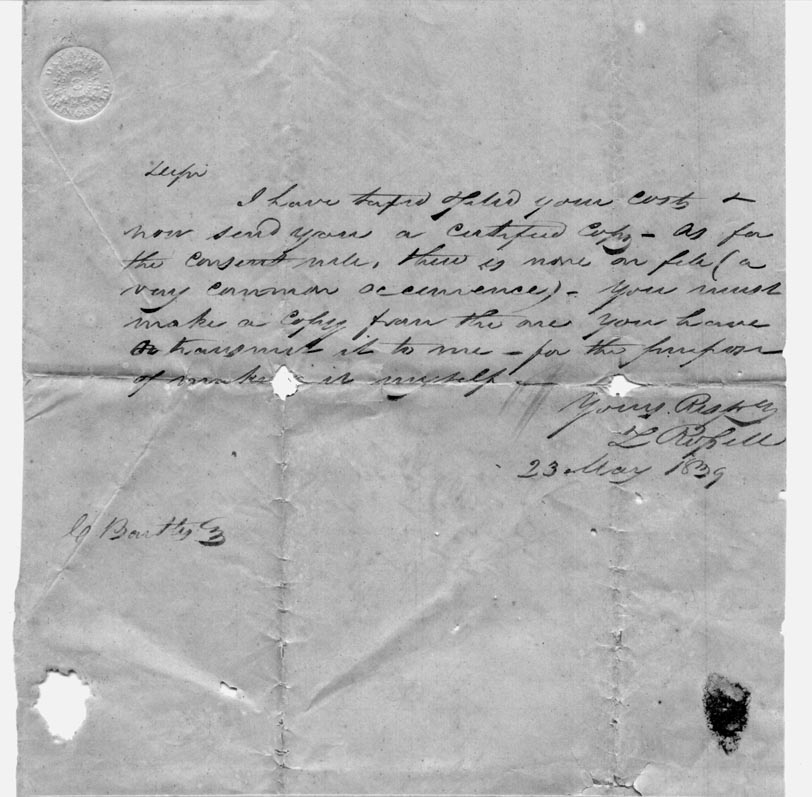 Sir
I have taxed & filed your costs &
now send you a certified copy - As for
the consent rule, there is none on file (a
very common occurrence) - You must
make a copy from the one you have
& transmit it to me - for the purpose
of mak it myself -
Yours
L
23 May 1839
C